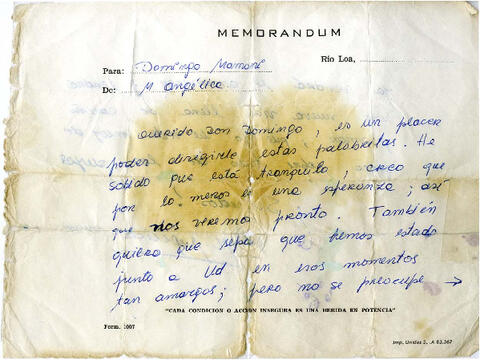 MEMORANDUM
Río Loa, ........
Para: Domingo Mamani
De: M Angélica
Querido Don Domingo, es un placer
poder dirigirle estas palabritas. He
sabido que está tranquilo, creo que
por lo menos le una esperanza; así
que nos veremos pronto. También
quiero que sepa que hemos estado
junto a Ud en esos momentos
tan amargos; pero no se preocupe →
"CADA CONDICION O ACCION INSEGURA ES UNA HERIDA EN POTENCIA"
Form. 1007
Imp. Unidas S. A 83.367